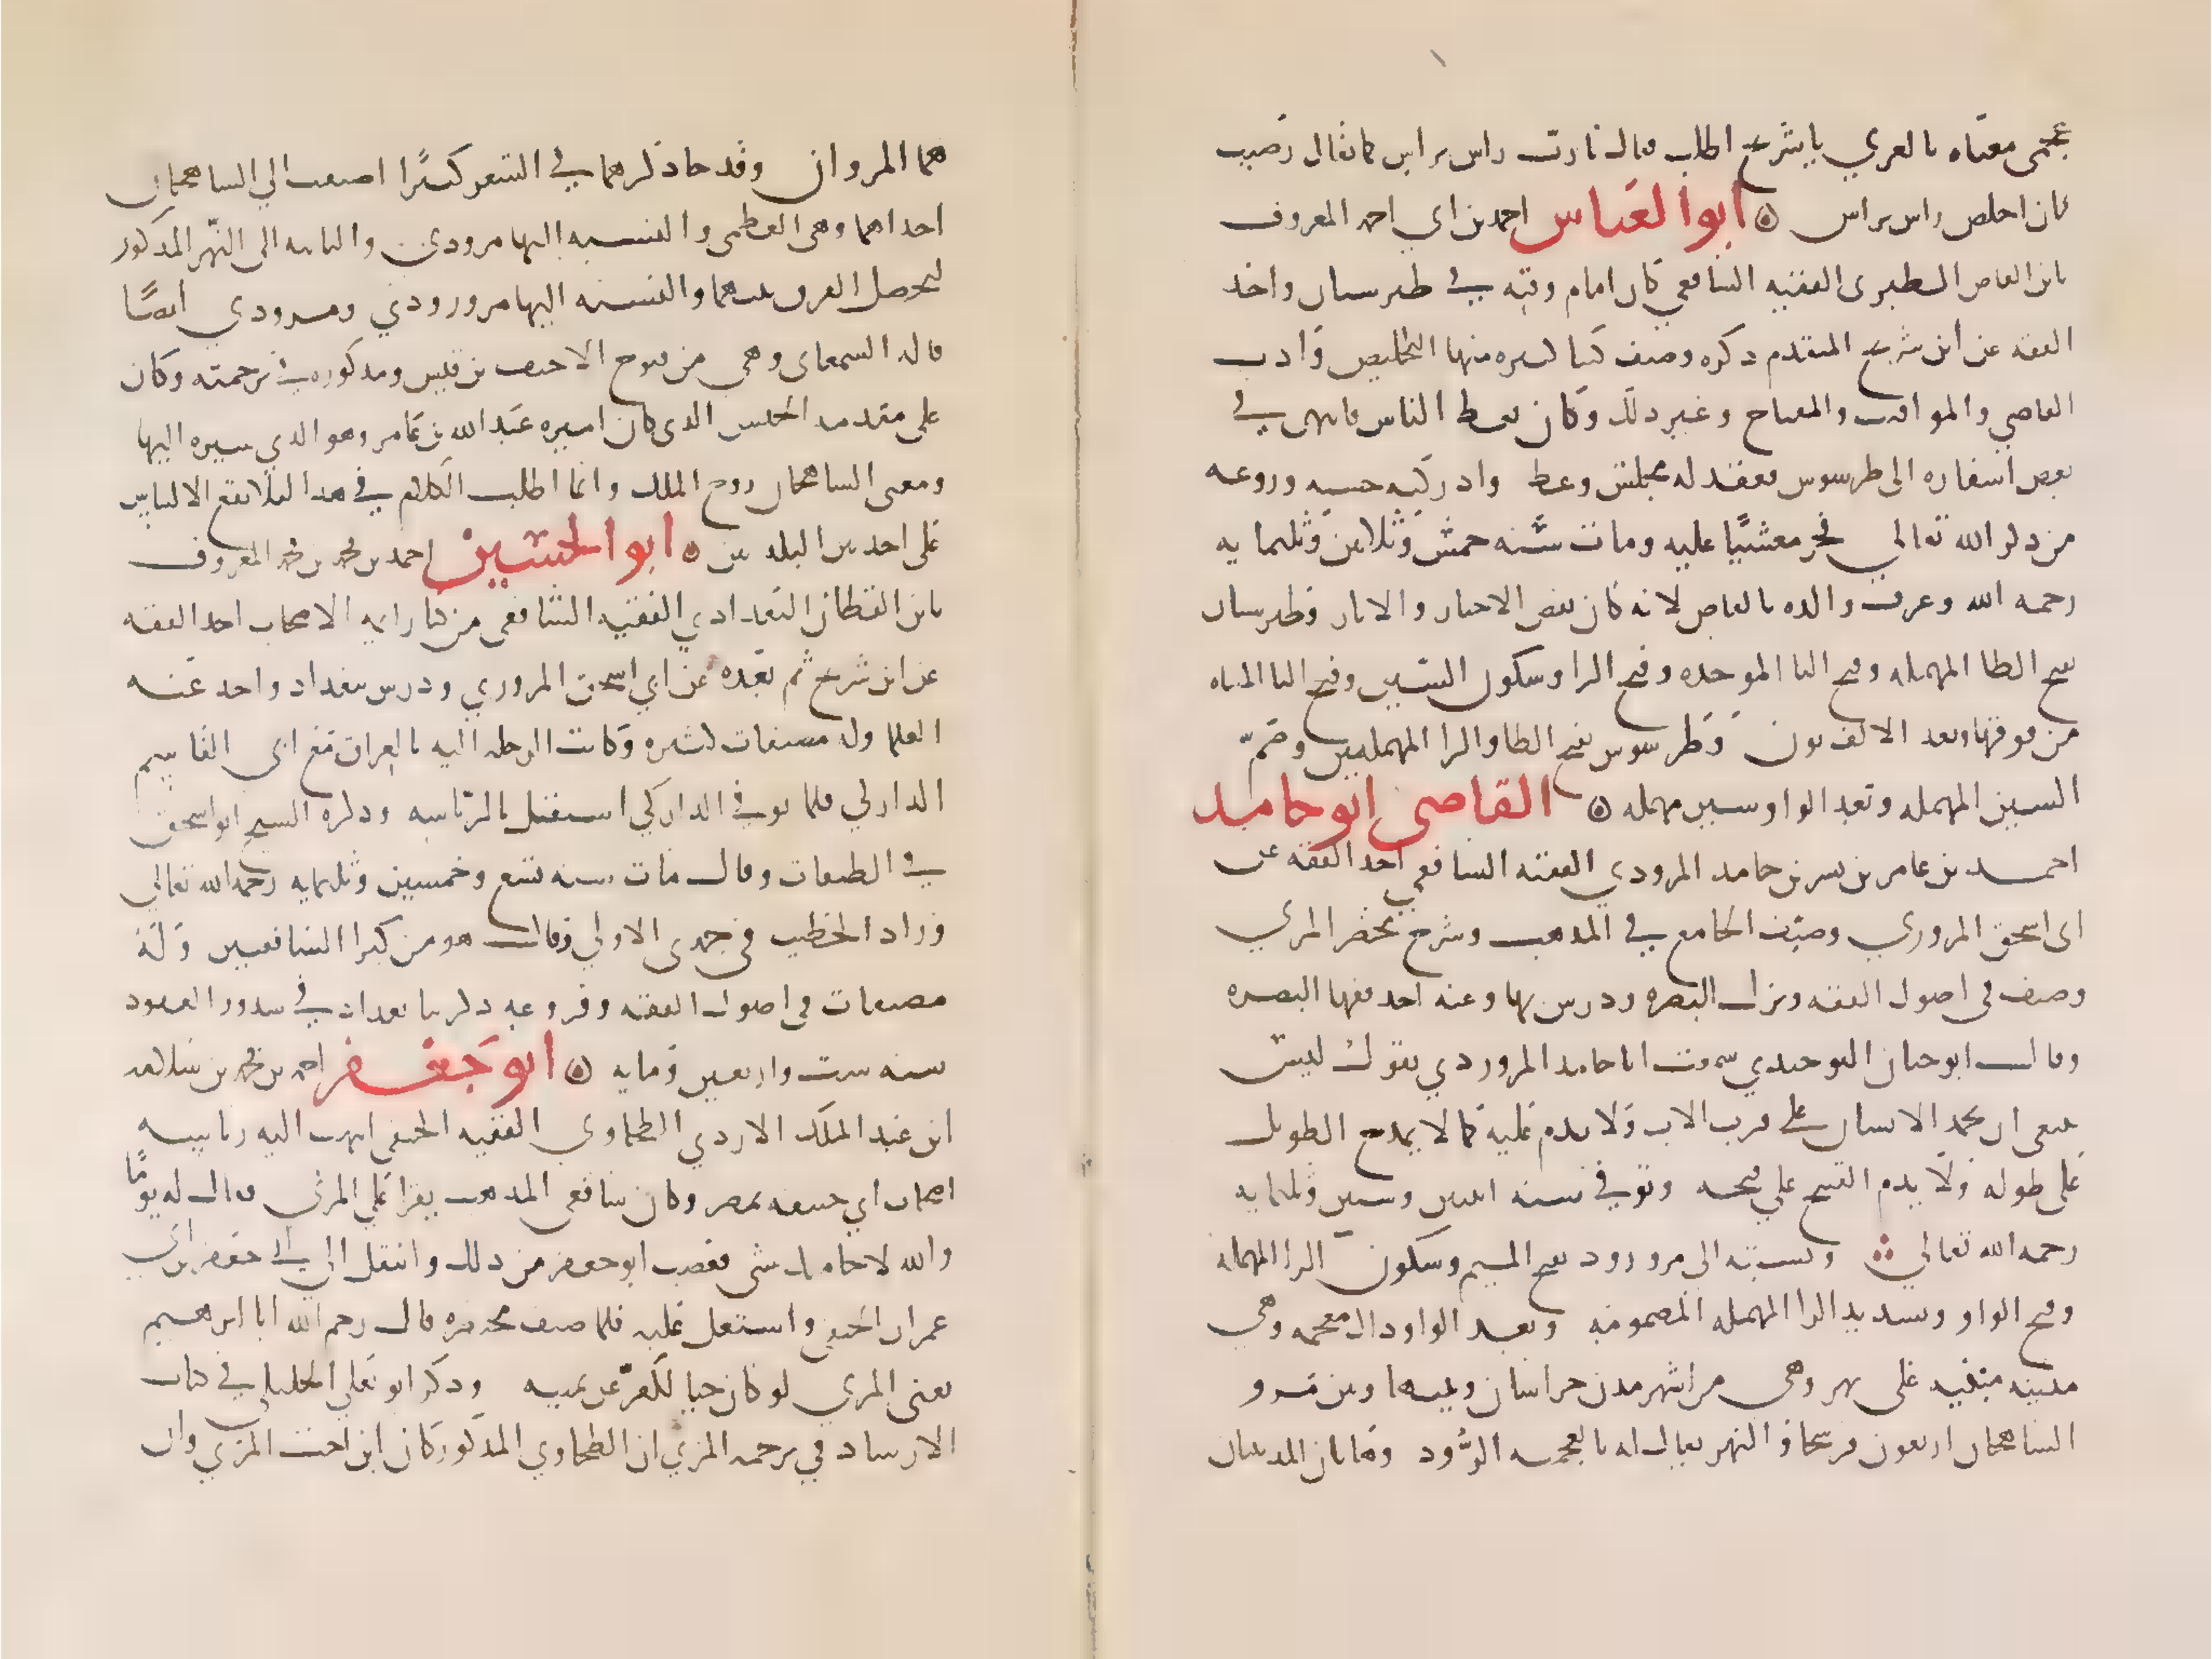 عجمي معناه بالعربي يا شريح اطلب فقال يا رب راس براس كما يقال رضيت
كان اخلص راس براس ۞ ابو العباس احمد بن ابي احمد المعروف
بابن القاص الطبري الفقيه الشافعي كان امام وقته في طبرستان واخذ
الفقه عن ابن شريح المتقدم ذكره وصنف كتبا كثيره منها التلخيص وادب
القاضي والمواقيت والمفتاح وغير ذلك وكان يعظ الناس فانتهى في
بعض اسفاره الى طرسوس فعقد له مجلس وعظ وادركته خشيه وروعه
من ذكر الله تعالى فخر مغشيا عليه ومات سنه خمس وثلاثين وثلثمايه
رحمه الله وعرف والده بالقاص لانه كان يقص الاخبار والاثار وطبرستان
بفتح الطا المهمله وفتح البا الموحده وفتح الرا وسكون السين وفتح التا المثناه
من فوقها وبعد الالف نون وطرسوس بفتح الطا والرا المهملتين وضم
السين المهمله وبعد الواو سين مهمله ۞ القاضي ابو حامد
احمد بن عامر بن بشر بن حامد المروذي الفقيه الشافعي اخذ الفقه عن
ابي اسحق المروزي وصنف الجامع في المذهب وشرح مختصر المزني
وصنف في اصول الفقه ونزل البصره ودرس بها وعنه اخذ فقها البصره
وقال ابو حيان التوحيدي سمعت ابا حامد المروروذي يقول ليس
ينبغي ان يحمد الانسان على قرب الاب ولا يذم عليه كما لا يمدح الطويل
على طوله ولا يذم القبيح على قبحه وتوفي سنه اثنين وستين وثلثمايه
رحمه الله تعالى ونسبته الى مروروذ بفتح الميم وسكون الرا المهمله
وفتح الواو وتشديد الرا المهمله المضمومه وبعد الواو ذال معجمه وهي
مدينه مبنيه على نهر وهي من اشهر مدن خراسان وبينها وبين مرو
الشاهجان اربعون فرسخا والنهر يقال له بالعجميه الرود وهاتان المدينتان
هما المروان وقد جا ذكرهما في الشعر كثيرا اضيفت الى الشاهجان
احداهما وهي العظمى والنسبه اليها مروزي والثانيه الى النهر المذكور
ليحصل الفرق بينهما والنسبه اليها مروروذي ومروذي ايضا
قاله السمعاني وهي من فتوح الاحنف بن قيس ومذكوره في ترجمته وكان
على مقدمه الجيش الذي كان اميره عبد الله بن عامر وهو الذي سيره اليها
ومعنى الشاهجان روح الملك وانما اطلت الكلام في هذا لئلا يقع الالتباس
على احد بين البلدين ۞ ابو الحسين احمد بن محمد بن محمد المعروف
بابن القطان البغدادي الفقيه الشافعي من كبار ايمه الاصحاب اخذ الفقه
عن ابن شريح ثم بعده عن ابي اسحق المروزي ودرس ببغداد واخذ عنه
العلما وله مصنفات كثيره وكانت الرحله اليه بالعراق مع ابي القاسم
الداركي فلما توفي الداركي استقل بالرئاسه وذكره الشيخ ابو اسحق
في الطبقات وقال مات سنه تسع وخمسين وثلثمايه رحمه الله تعالى
وزاد الخطيب في جمدى الاولى وقال هو من كبرا الشافعيين وله
مصنفات في اصول الفقه وفروعه
سنه ست واربعين ومايه ۞ ابو جعفر احمد بن محمد بن سلامه
ابن عبد الملك الازدي الطحاوي الفقيه الحنفي انتهت اليه رئاسه
اصحاب ابي حنيفه بمصر وكان شافعي المذهب يقرا على المزني فقال له يوما
والله لا جا منك شي فغضب ابو جعفر من ذلك وانتقل الى ابي جعفر بن ابي
عمران الحنفي واشتغل عليه فلما صنف مختصره قال رحم الله ابا ابرهيم
يعني المزني لو كان حيا لكفر عن يمينه وذكر ابو يعلى الخليلي في كتاب
الارشاد في ترجمه المزني ان الطحاوي المذكور كان ابن اخت المزني وان